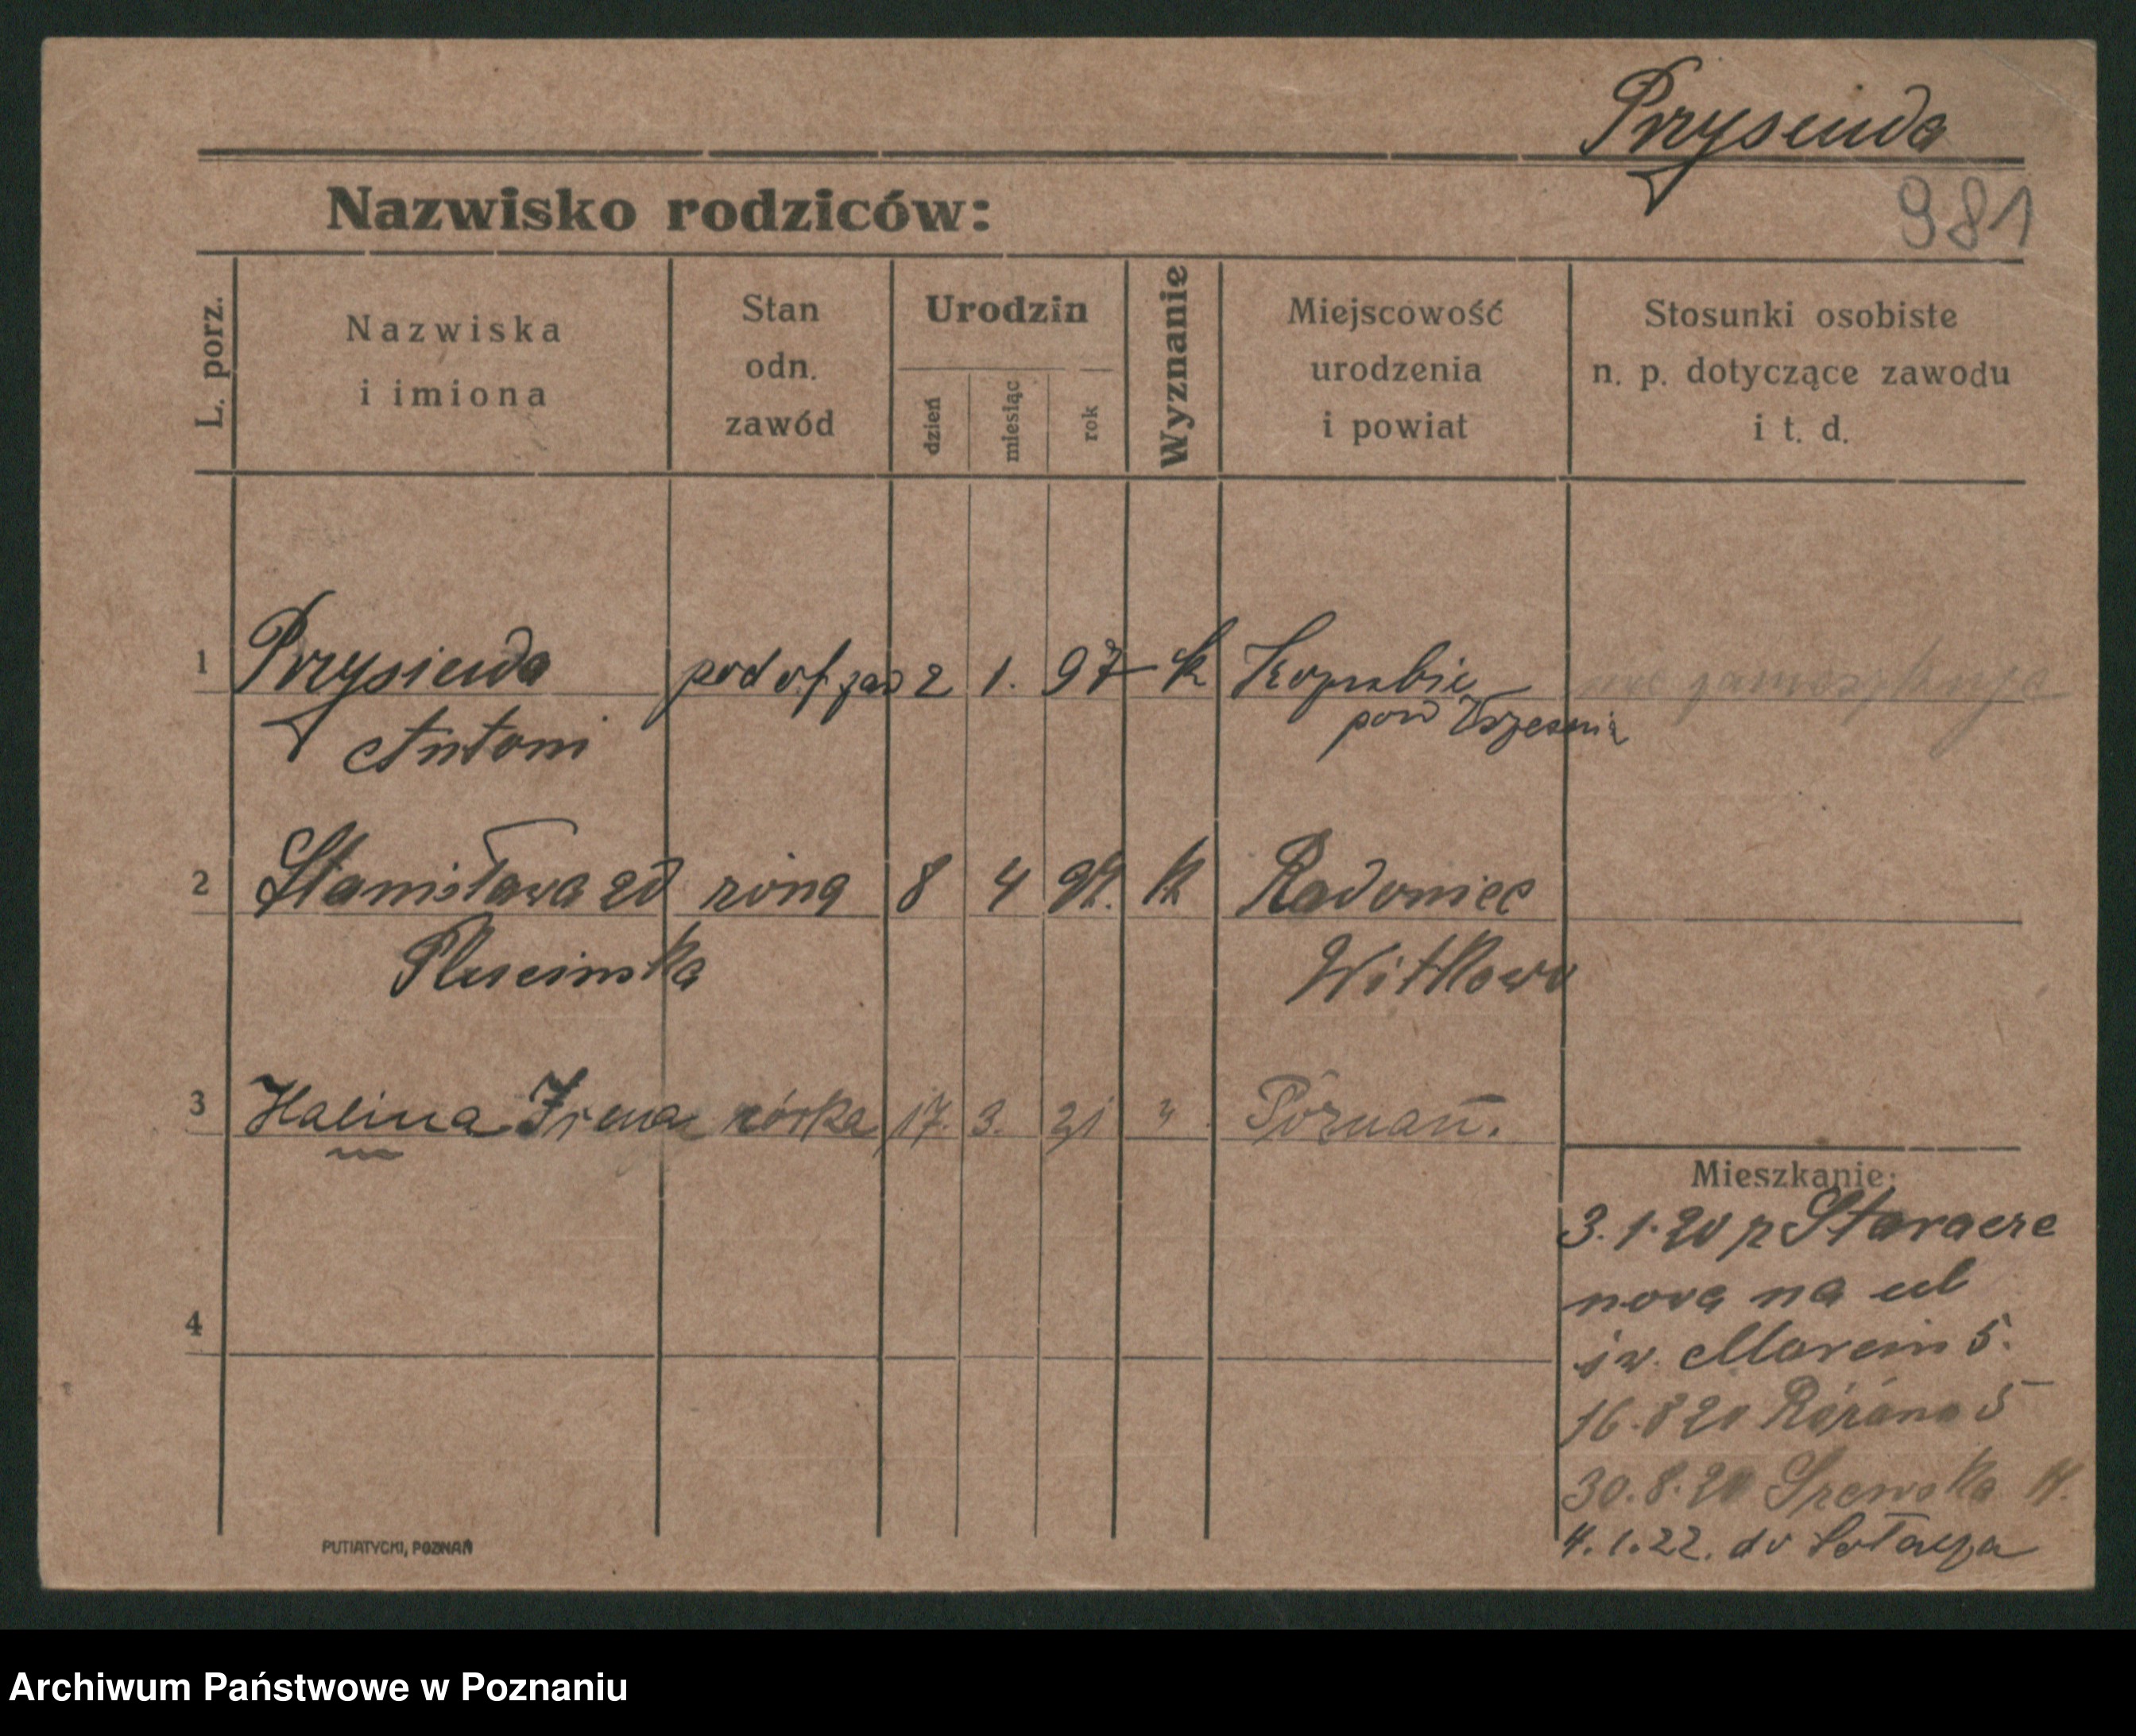 Przysiuda
981
Nazwisko rodziców:
L. porz.
Nazwiska
i imiona
Stan
odn.
zawód
Urodzin
dzień
miesiąc
rok
Wyznanie
Miejscowość
urodzenia
i powiat
Stosunki osobiste
n. p. dotyczące zawodu
i t. d.
1 Przysiuda podof zaw 2 1. 97 k nie zameszkuje
Antoni pow Września
2 Stanisława zd żona 8 4 k Radomice
Pluscinska Witkowo
3 Halina Irena córka 17. 3. 21 " Poznań.
4
Mieszkanie:
3.1.20 z Starołę
na ul
św. Marcin 5.
16.8 20 Różana 5
30.8.20 Szewska
4.1.22. do Sołacza
PUTIATYCKI, POZNAŃ
Archiwum Państwowe w Poznaniu